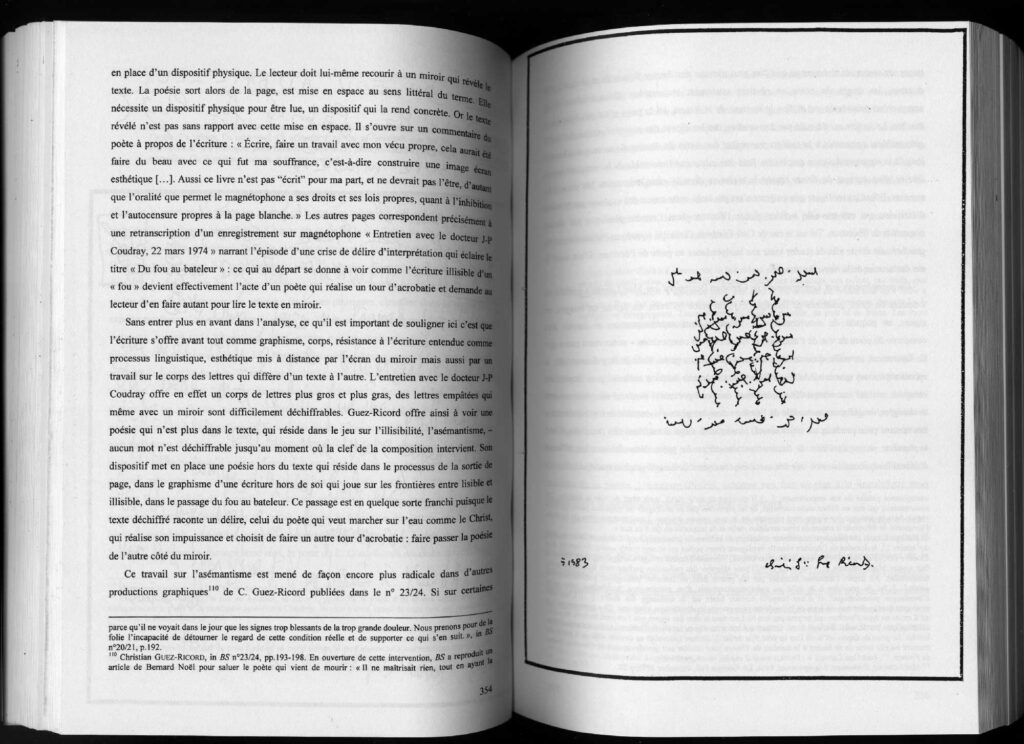 en place d'un dispositif physique. Le lecteur doit lui-même recourir à un miroir qui révèle le
texte. La poésie sort alors de la page, est mise en espace au sens littéral du terme. Elle
nécessite un dispositif physique pour être lue, un dispositif qui la rend concrète. Or le texte
révélé n'est pas sans rapport avec cette mise en espace. Il s'ouvre sur un commentaire du
poète à propos de l'écriture : « Écrire, faire un travail avec mon vécu propre, cela aurait été
faire du beau avec ce qui fut ma souffrance, c'est-à-dire construire une image écran
esthétique […]. Aussi ce livre n'est pas "écrit" pour ma part, et ne devrait pas l'être, d'autant
que l'oralité que permet le magnétophone a ses droits et ses lois propres, quant à l'inhibition
et l'autocensure propres à la page blanche. » Les autres pages correspondent précisément à
une retranscription d'un enregistrement sur magnétophone « Entretien avec le docteur J-P
Coudray, 22 mars 1974 » narrant l'épisode d'une crise de délire d'interprétation qui éclaire le
titre « Du fou au bateleur » : ce qui au départ se donne à voir comme l'écriture illisible d'un
« fou » devient effectivement l'acte d'un poète qui réalise un tour d'acrobatie et demande au
lecteur d'en faire autant pour lire le texte en miroir.
Sans entrer plus en avant dans l'analyse, ce qu'il est important de souligner ici c'est que
l'écriture s'offre avant tout comme graphisme, corps, résistance à l'écriture entendue comme
processus linguistique, esthétique mis à distance par l'écran du miroir mais aussi par un
travail sur le corps des lettres qui diffère d'un texte à l'autre. L'entretien avec le docteur J-P
Coudray offre en effet un corps de lettres plus gros et plus gras, des lettres empâtées qui
même avec un miroir sont difficilement déchiffrables. Guez-Ricord offre ainsi à voir une
poésie qui n'est plus dans le texte, qui réside dans le jeu sur l'illisibilité, l'asémantisme, –
aucun mot n'est déchiffrable jusqu'au moment où la clef de la composition intervient. Son
dispositif met en place une poésie hors du texte qui réside dans le processus de la sortie de
page, dans le graphisme d'une écriture hors de soi qui joue sur les frontières entre lisible et
illisible, dans le passage du fou au bateleur. Ce passage est en quelque sorte franchi puisque le
texte déchiffré raconte un délire, celui du poète qui veut marcher sur l'eau comme le Christ,
qui réalise son impuissance et choisit de faire un autre tour d'acrobatie : faire passer la poésie
de l'autre côté du miroir.
Ce travail sur l'asémantisme est mené de façon encore plus radicale dans d'autres
productions graphiques110 de C. Guez-Ricord publiées dans le n° 23/24. Si sur certaines
parce qu'il ne voyait dans le jour que les signes trop blessants de la trop grande douleur. Nous prenons pour de la
folie l'incapacité de détourner le regard de cette condition réelle et de supporter ce qui s'en suit. », in BS
n°20/21, p.192.
110 Christian GUEZ-RICORD, in BS n°23/24, pp.193-198. En ouverture de cette intervention, BS a reproduit un
article de Bernard Noël pour saluer le poète qui vient de mourir : « Il ne maîtrisait rien, tout en ayant la
354
1983
Ricord.